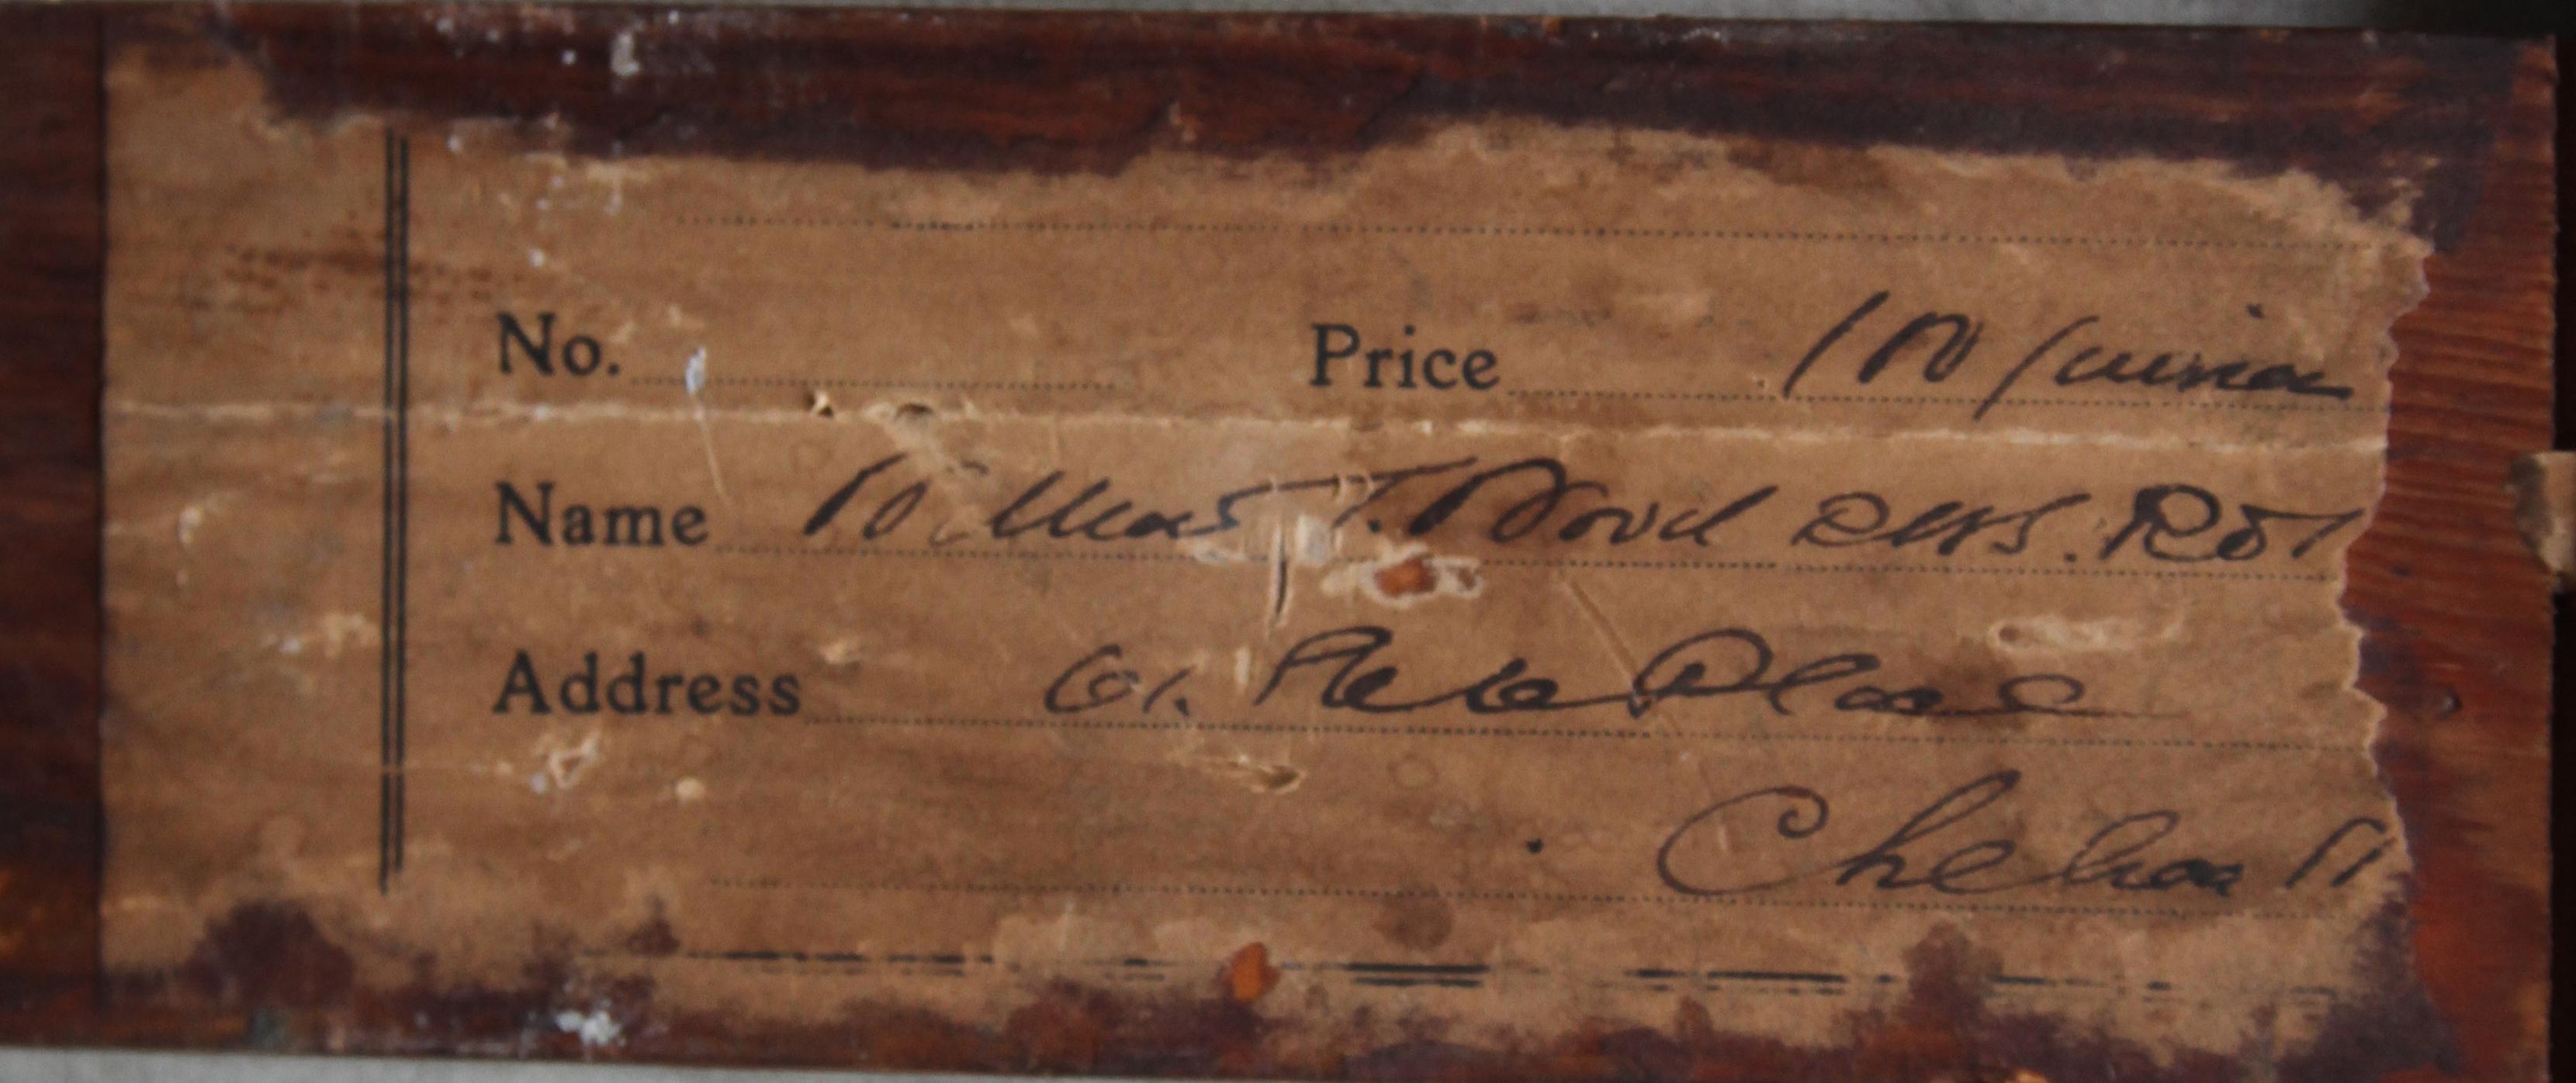 No. Price 10 guineas
Name William T. Wood RWS. ROI
Address 61. Place
Chelsea